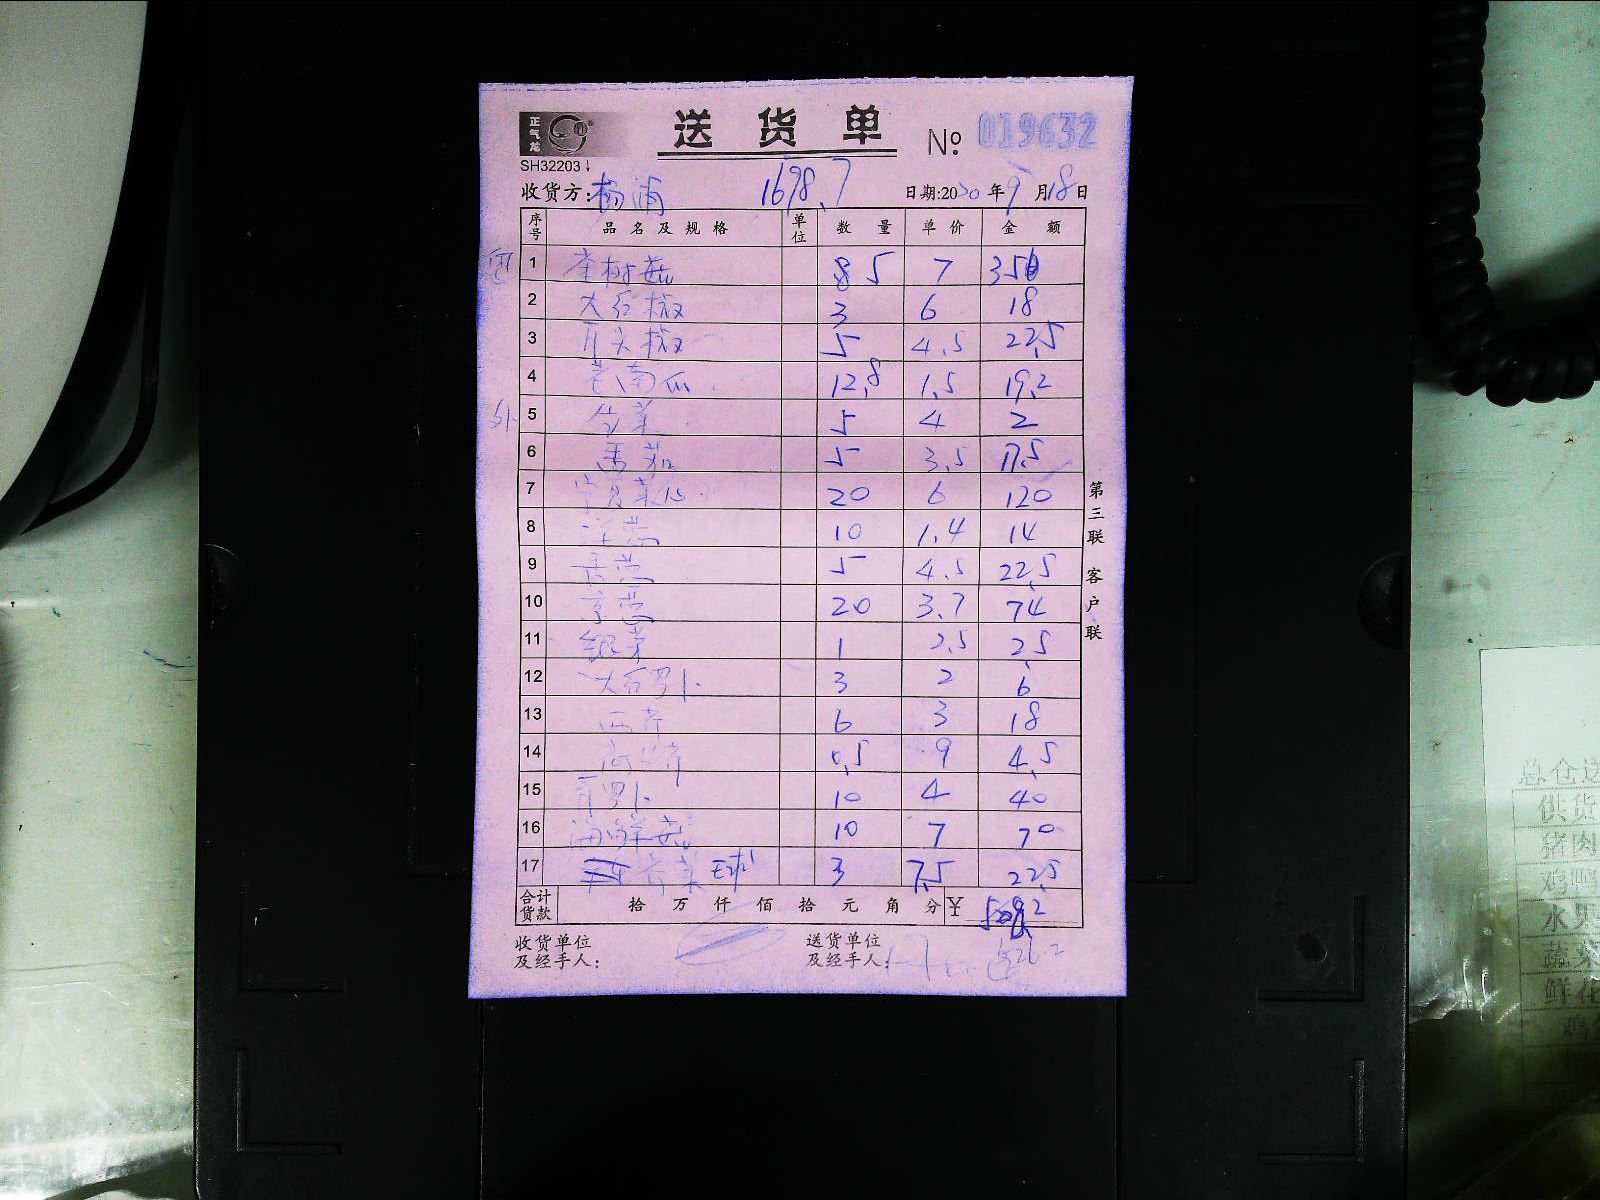 正气龙
送货单 № 019632
SH32203
收货方: 杨浦 1698.7 日期:2020年9月18日
序号 品名及规格 单位 数量 单价 金额
1 茶树菇 5 7 35
2 大红椒 3 6 18
3 大椒 5 4.5 22.5
4 老南瓜 12.8 1.5 19.2
外 5 生菜 5 4 2
6 番茄 5 3.5 17.5
7 宁夏菜心 20 6 120
8 洋葱 10 1.4 14
9 香葱 5 4.5 22.5
10 京葱 20 3.7 74
11 银芽 1 2.5 2.5
12 大红萝卜 3 2 6
13 西芹 6 3 18
14 0.5 9 4.5
15 萝卜 10 4 40
16 海鲜菇 10 7 70
17 菜球 3 7.5 22.5
合计货款 拾 万 仟 佰 拾 元 角 分 ¥
收货单位 送货单位
及经手人: 及经手人: 526.2
第三联 客户联
总仓送
供货
猪肉
鸡鸭
水果
蔬菜
鲜花